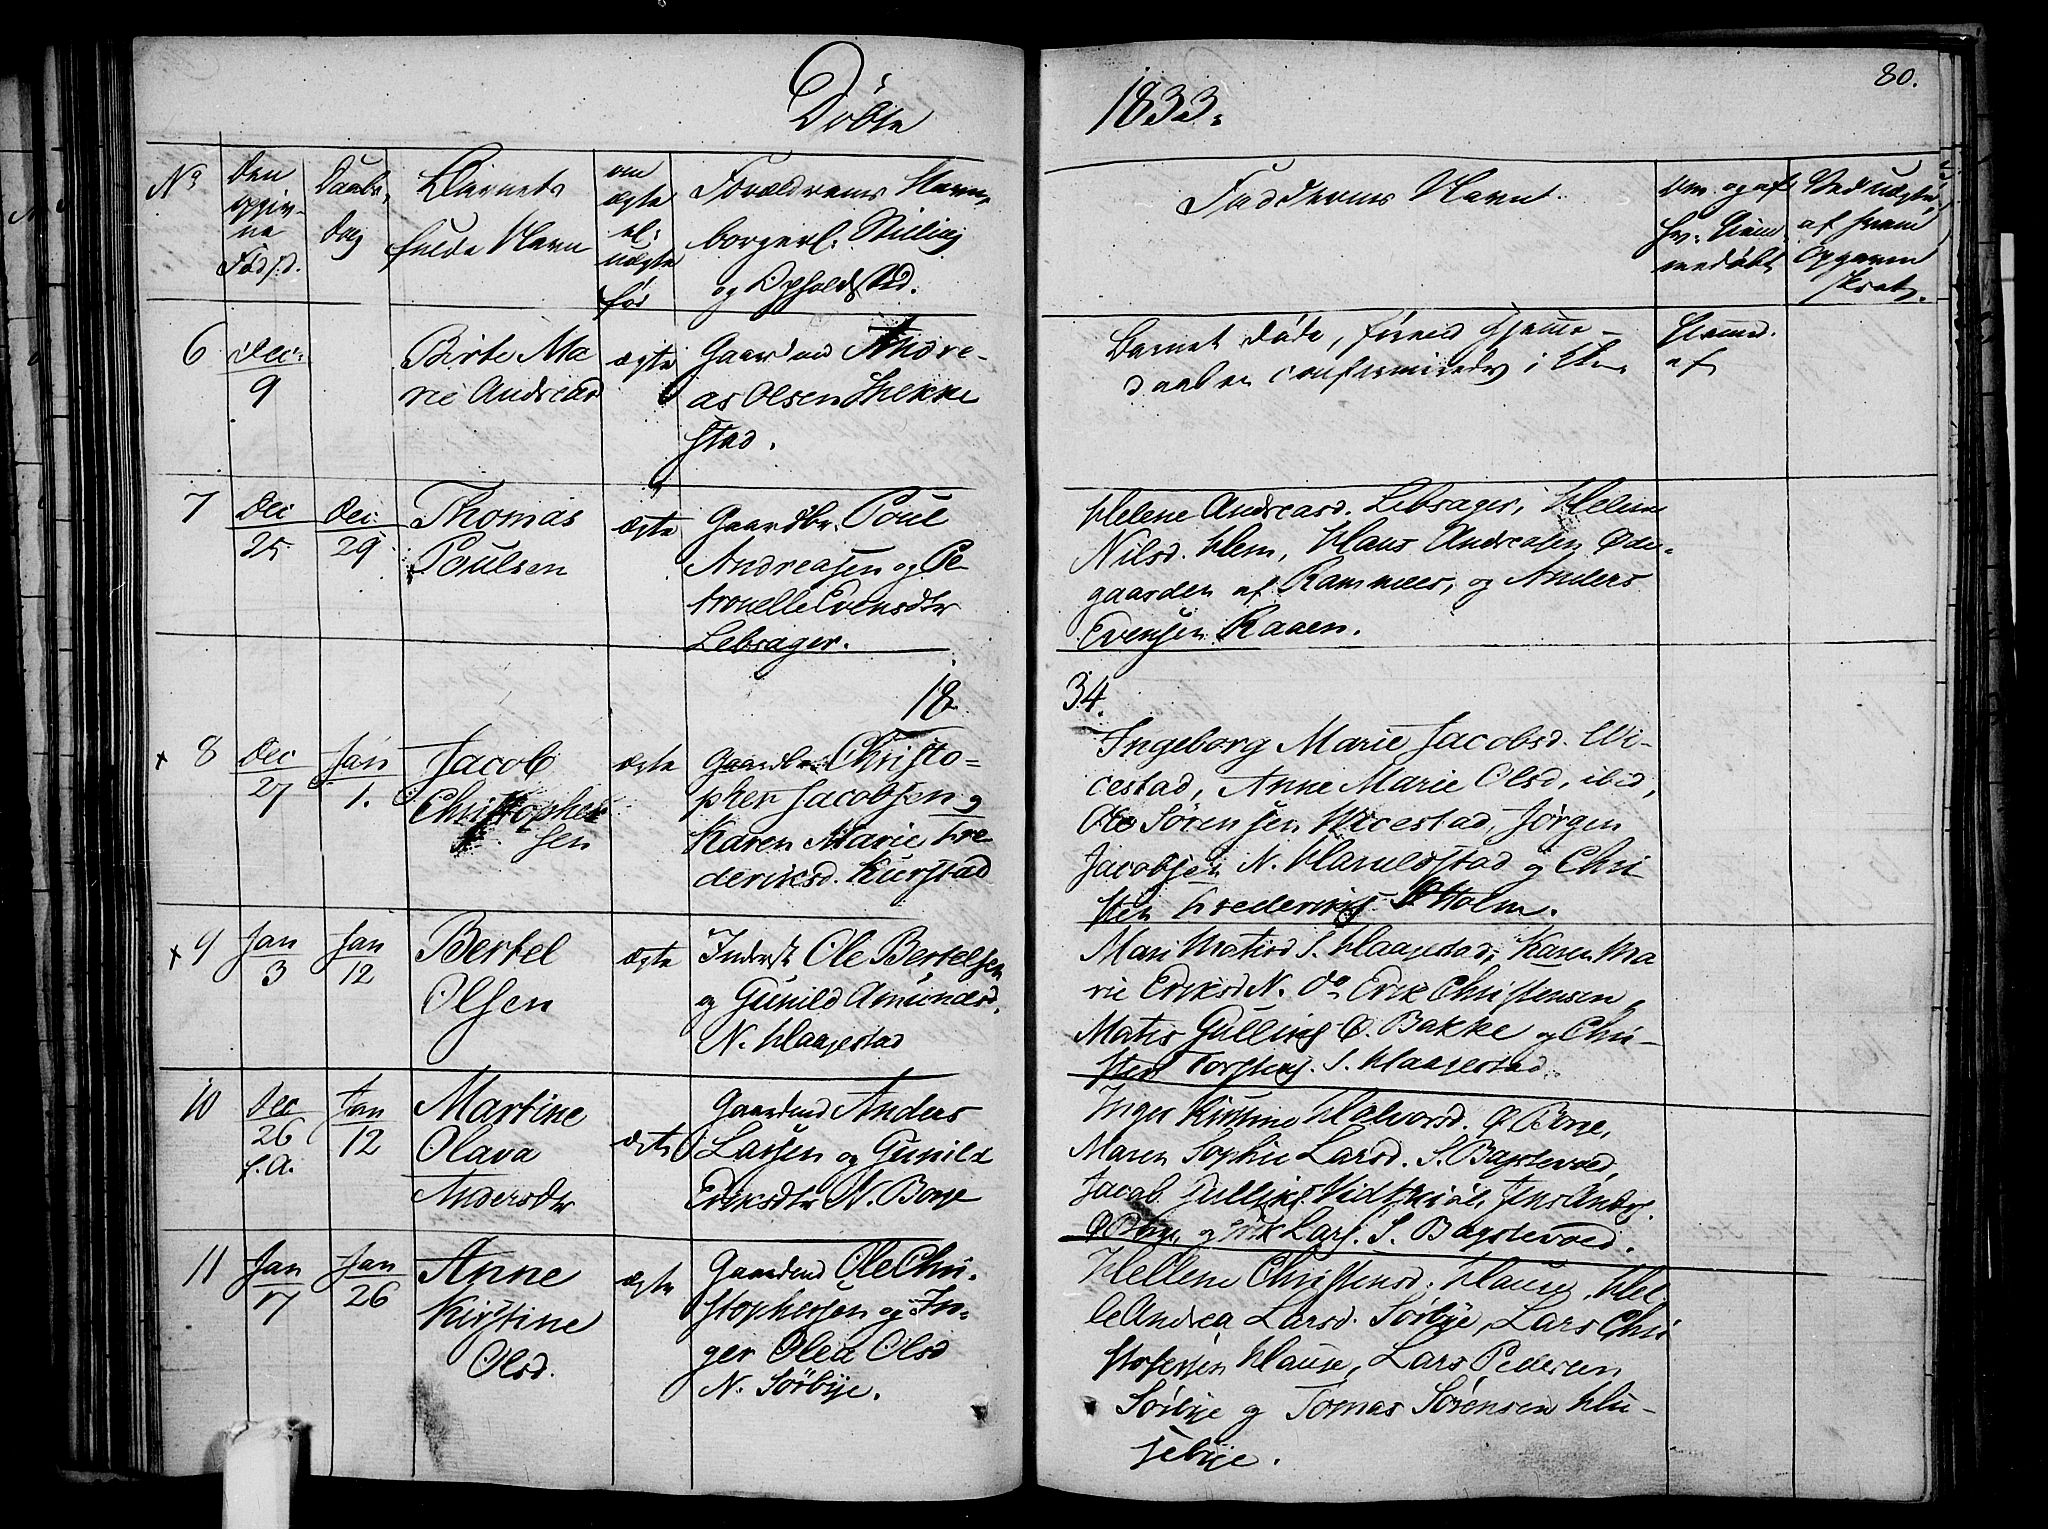 80.
Döbte
1833.
No
Den opgivne Fødsd.
Daabs Dag
Barnets fulde Navn
om ægte el. uægte fød
Forældrenes Navn, borgerl. Stilling og Opholdsted.
Faddernes Navn.
Naar og af hv. Hiemmedøbt
6
Dec:
9
Birte Ma
rie Andreasd
ægte
Gaardmd Andre-
as Olsen
stad.
Barnet døde, førend Hjemme-
daaben
Hjemmd.
af
7
Dec
25
Dec.
29
Thomas
Poulsen
ægte
Gaardbr. Poul
Andreasen og Pe
tronelle Evensdtr
Lebsager.
Helene Andreasd. Lebsager, Helene
Nilsd. Hem, Hans Andreasen Øde-
gaarden af Ramnæs, og Anders
Evensen Raaen.
18
34.
+ 8
Dec
27
Jan
1.
Jacob
Christopher
sen
ægte
Gaardbr. Christo-
pher Jacobsen og
Karen Marie Fre
deriksd. Kurstad
Ingeborg Marie Jacobsd. Wi-
cestad, Anne Marie Olsd, ibid,
Ole Sørensen Wicestad, Jørgen
Jacobsen N. Haraldstad og Chri
sten Frederiks Holm.
+ 9
Jan
3
Jan
12
Bertel
Olsen
ægte
Inderst Ole Bertelsen
og Gunild Amundsd.
N. Haagestad
Mari Matisd S. Haagestad, Karen Ma
rie Eriksd N. do Erik Christensen
Matis Gulliks Ø. Bakke og Chri-
sten Torstens. S. Haagestad.
10
Dec
26
f. A.
Jan
12
Martine
Olava
Andersdtr
ægte
Gaardmd Anders
Larsen og Gunild
Eriksdtr N. Borge
Inger Kirstine Halvorsd. Ø Borge,
Maren Sophie Larsd. S. Bagstevold,
Jacob Gulliks. Jens Anders.
Ø Borge, og Erik Lars. S. Bagstevold.
11
Jan
17
Jan
26
Anne
Kirstine
Olsd.
ægte
Gaardmd Ole Chri-
stophersen og In-
ger Olea Olsd
N. Sörbye.
Hellene Christensd. Hause, Hel-
le Andrea Larsd. Sörbye, Lars Chri
stofersen Hause, Lars Pedersen
Sörbye og Tomas Sörensen Hu-
sebye.